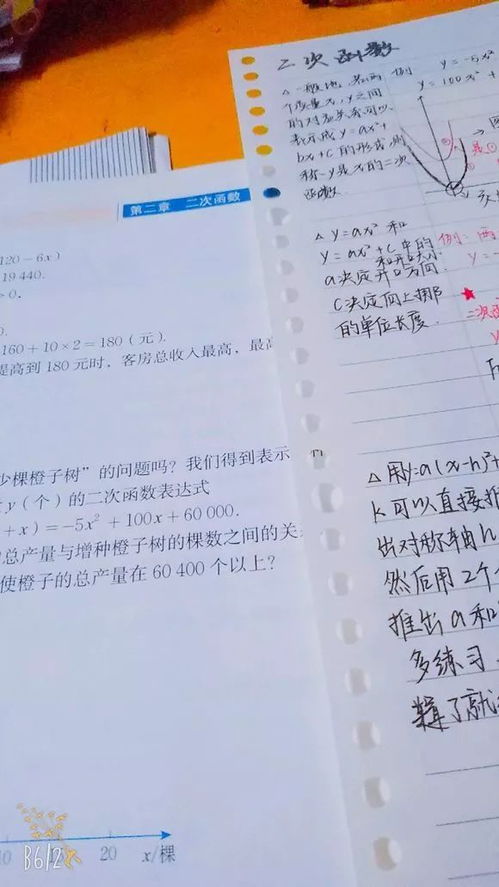 第二章 二次函数
120－6x）
19 440.
＞0.
160＋10×2＝180（元）.
提高到 180 元时，客房总收入最高，最高
少棵橙子树”的问题吗？我们得到表示
y（个）的二次函数表达式
＋x）＝－5x²＋100x＋60 000.
总产量与增种橙子树的棵数之间的关
使橙子的总产量在 60 400 个以上？
20 x/棵
B612
二次函数
△一般地，若两
个变量x,y之间
的对应关系可以
表示成y=ax²+
bx+c的形式,则
称y是x的二次
函数.
例
y=-5x²
y=100x²+
△y=ax²和
y=ax²+c中的
a决定开口方向
和开口大小
c决定向上挪
的单位长度.
例：两
y=-
★
二次函
△用y=a(x-h)²+
k可以直接
出对称轴h
然后用2个
推出a和
多练习